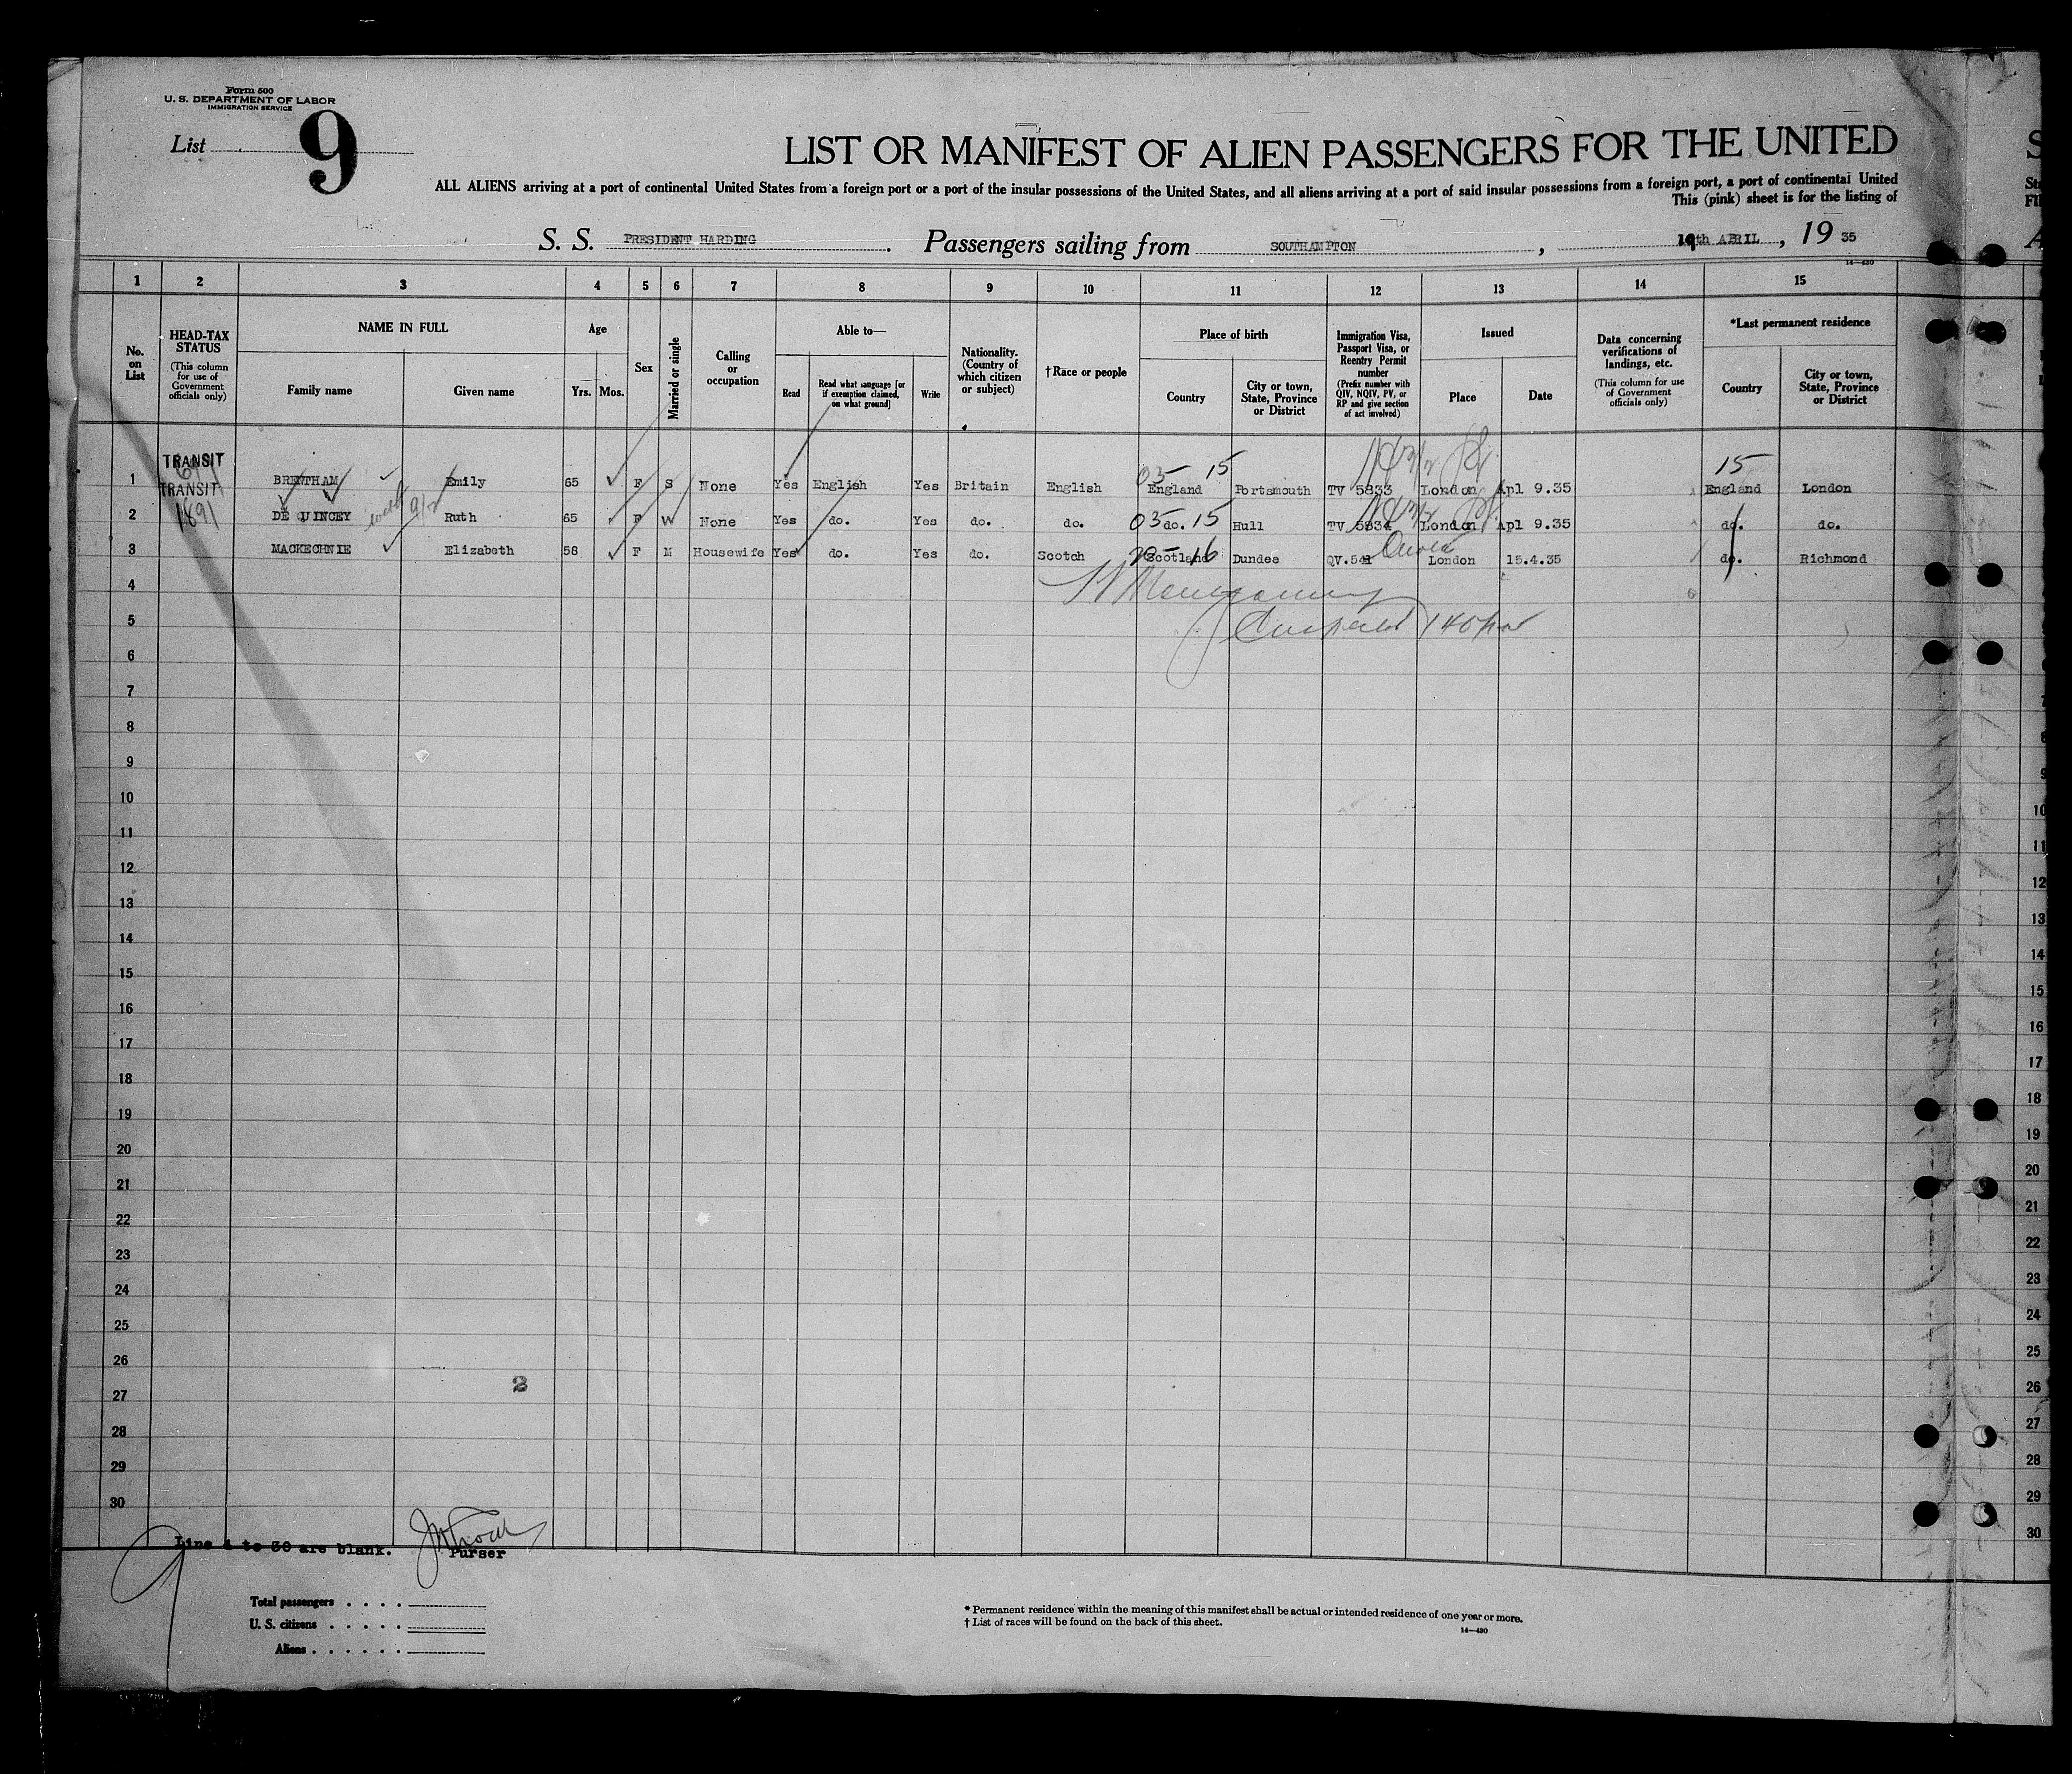 Form 500
U. S. DEPARTMENT OF LABOR
IMMIGRATION SERVICE
List 9
LIST OR MANIFEST OF ALIEN PASSENGERS FOR THE UNITED
ALL ALIENS arriving at a port of continental United States from a foreign port or a port of the insular possessions of the United States, and all aliens arriving at a port of said insular possessions from a foreign port, a port of continental United
This (pink) sheet is for the listing of
S. S. PRESIDENT HARDING. Passengers sailing from SOUTHAMPTON, 19th APRIL, 19 35
14—430
1 2 3 4 5 6 7 8 9 10 11 12 13 14 15
No. on List
HEAD-TAX STATUS
(This column for use of Government officials only)
NAME IN FULL
Family name
Given name
Age
Yrs. Mos.
Sex
Married or single
Calling or occupation
Able to—
Read
Read what language [or if exemption claimed, on what ground]
Write
Nationality. (Country of which citizen or subject)
†Race or people
Place of birth
Country
City or town, State, Province or District
Immigration Visa, Passport Visa, or Reentry Permit number
(Prefix number with QIV, NQIV, PV, or RP and give section of act involved)
Issued
Place
Date
Data concerning verifications of landings, etc.
(This column for use of Government officials only)
*Last permanent residence
Country
City or town, State, Province or District
TRANSIT
03 15 15
1 BRENTHAM Emily 65 F S None Yes English Yes Britain English England Portsmouth TV 5833 London Apl 9.35 England London
TRANSIT
1891
2 DE QUINCEY Ruth 65 F W None Yes do. Yes do. do. 03 do. 15 Hull TV 5834 London Apl 9.35 do. do.
3 MACKECHNIE Elizabeth 58 F M Housewife Yes do. Yes do. Scotch Scotland 16 Dundee QV.541 London 15.4.35 do. Richmond
4
5
6
7
8
9
10
11
12
13
14
15
16
17
18
19
20
21
22
23
24
25
26
27
28
29
30
2
Line 4 to 30 are blank.
Purser
Total passengers
U. S. citizens
Aliens
* Permanent residence within the meaning of this manifest shall be actual or intended residence of one year or more.
† List of races will be found on the back of this sheet.
14—430